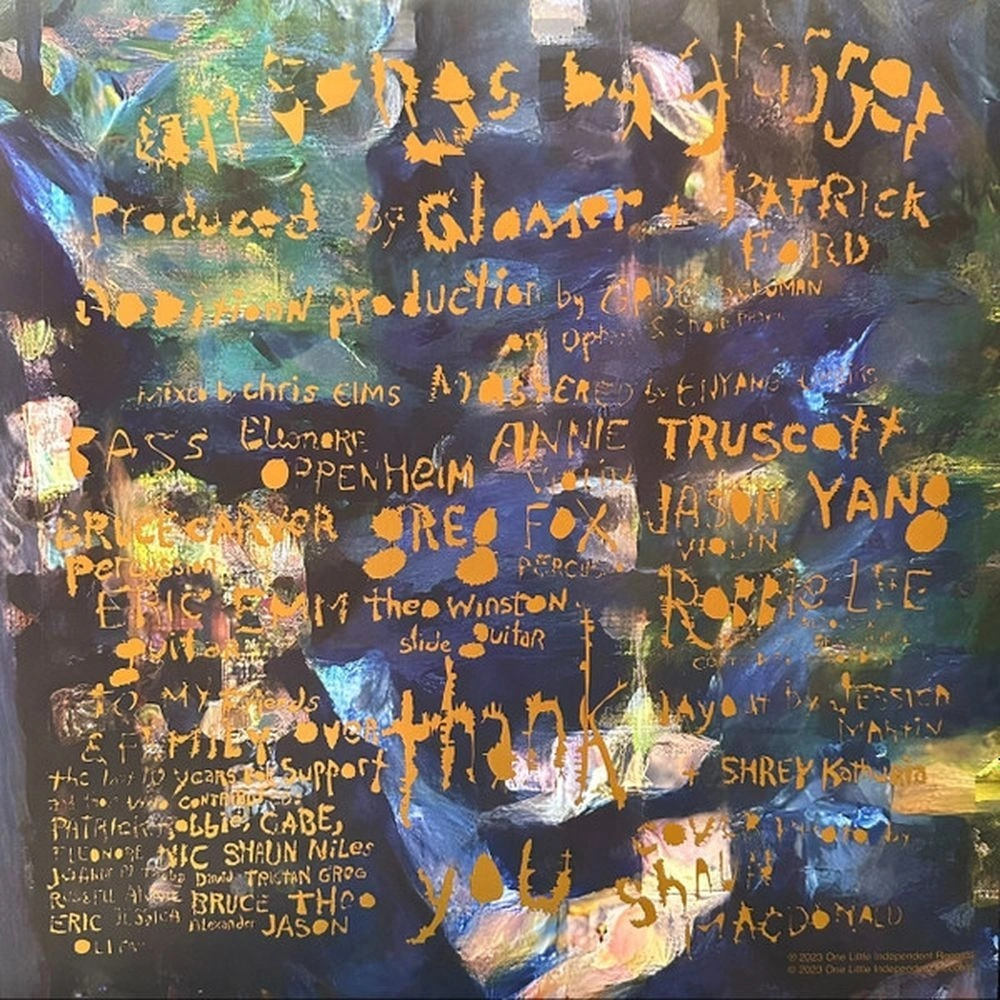 all songs by glasser
Produced by Glasser + PATRICK
FORD
ADDITION production by GABE
on & Choir
Mixed by chris Elms MASTERED by ENYANG
BASS Eleonore OPPENHEIM
ANNIE TRUSCOTT
VIOLIN
BRUCE CARVER
percussion
GREG FOX
PERCUS
JASON YANG
VIOLIN
ERIC EMM
guitar
theo WINSTON
slide guitar
ROBBIE LEE
TO MY friends
& FAMILY over
the last 10 years for support
PATRICK Robbie, GABE,
ELEONORE NIC SHAUN NILES
David TRISTAN GREG
BRUCE THEO
ERIC JESSICA Alexander JASON
thank
you
layout by JESSICA
MARTIN
+ SHREY Kathuria
COVER PHOTO by
ShAUN
MACDONALD
℗ 2023 One Little Independent Records
© 2023 One Little Independent Records